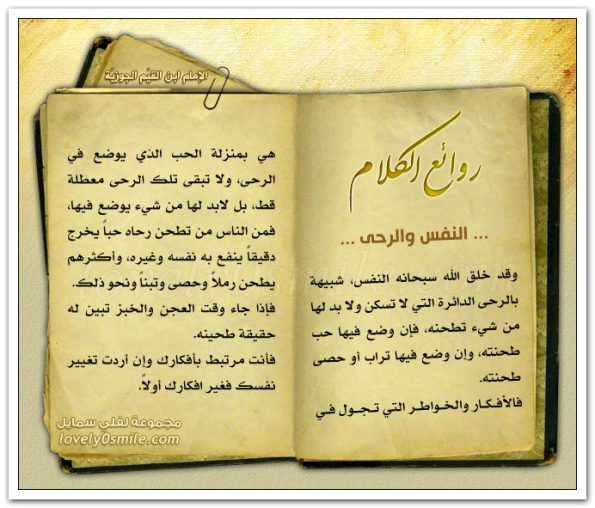 الإمام ابن القيّم الجوزيّة
روائع الكلام
... النفس والرحى ...
وقد خلق الله سبحانه النفس، شبيهة
بالرحى الدائرة التي لا تسكن ولا بد لها
من شيء تطحنه، فإن وضع فيها حب
طحنته، وإن وضع فيها تراب أو حصى
طحنته.
فالأفكار والخواطر التي تجول في
هي بمنزلة الحب الذي يوضع في
الرحى، ولا تبقى تلك الرحى معطلة
قط، بل لابد لها من شيء يوضع فيها،
فمن الناس من تطحن رحاه حباً يخرج
دقيقاً ينفع به نفسه وغيره، وأكثرهم
يطحن رملاً وحصى وتبناً ونحو ذلك.
فإذا جاء وقت العجن والخبز تبين له
حقيقة طحينه.
فأنت مرتبط بأفكارك وإن أردت تغيير
نفسك فغير افكارك أولاً.
مجموعة لفلي سمايل
lovely0smile.com